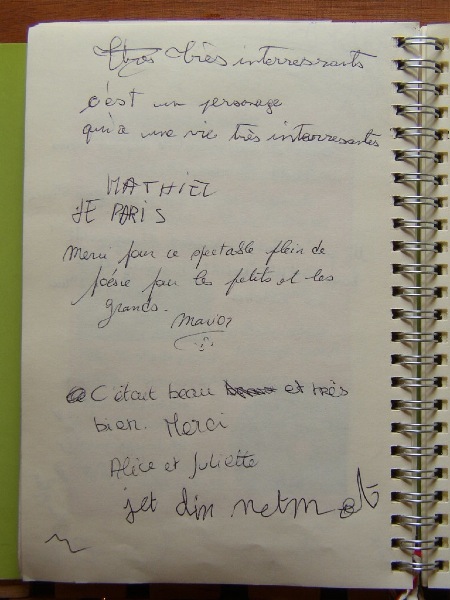 très interressants
c'est un personage
qui a une vie très interressantes
MATHIEL
JE PARIS
Merci pour ce spectable plein de
poésie pour les petits et les
grands.
C'était beau et très
bien. Merci
Alice et Juliette